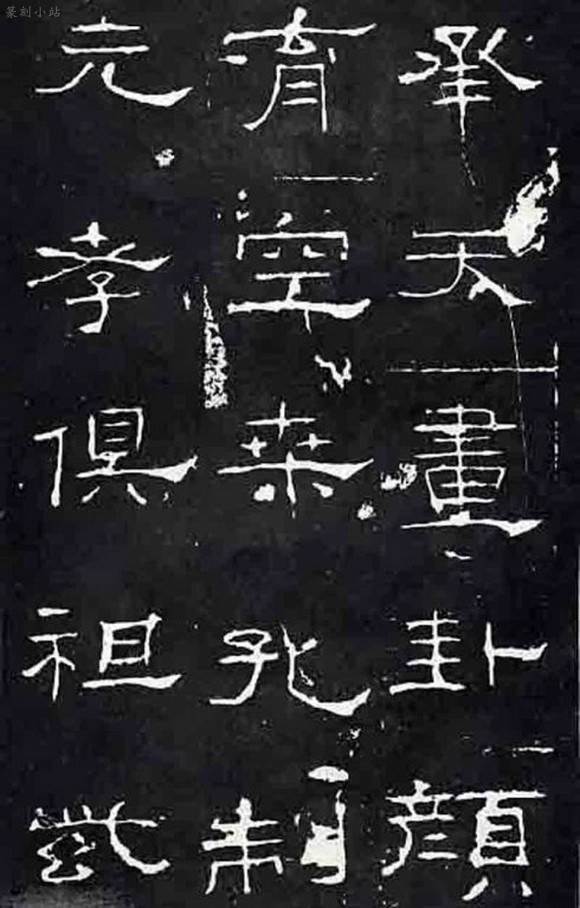 承天畫卦顏
育空桒孔制
元孝俱祖紫
篆刻小站